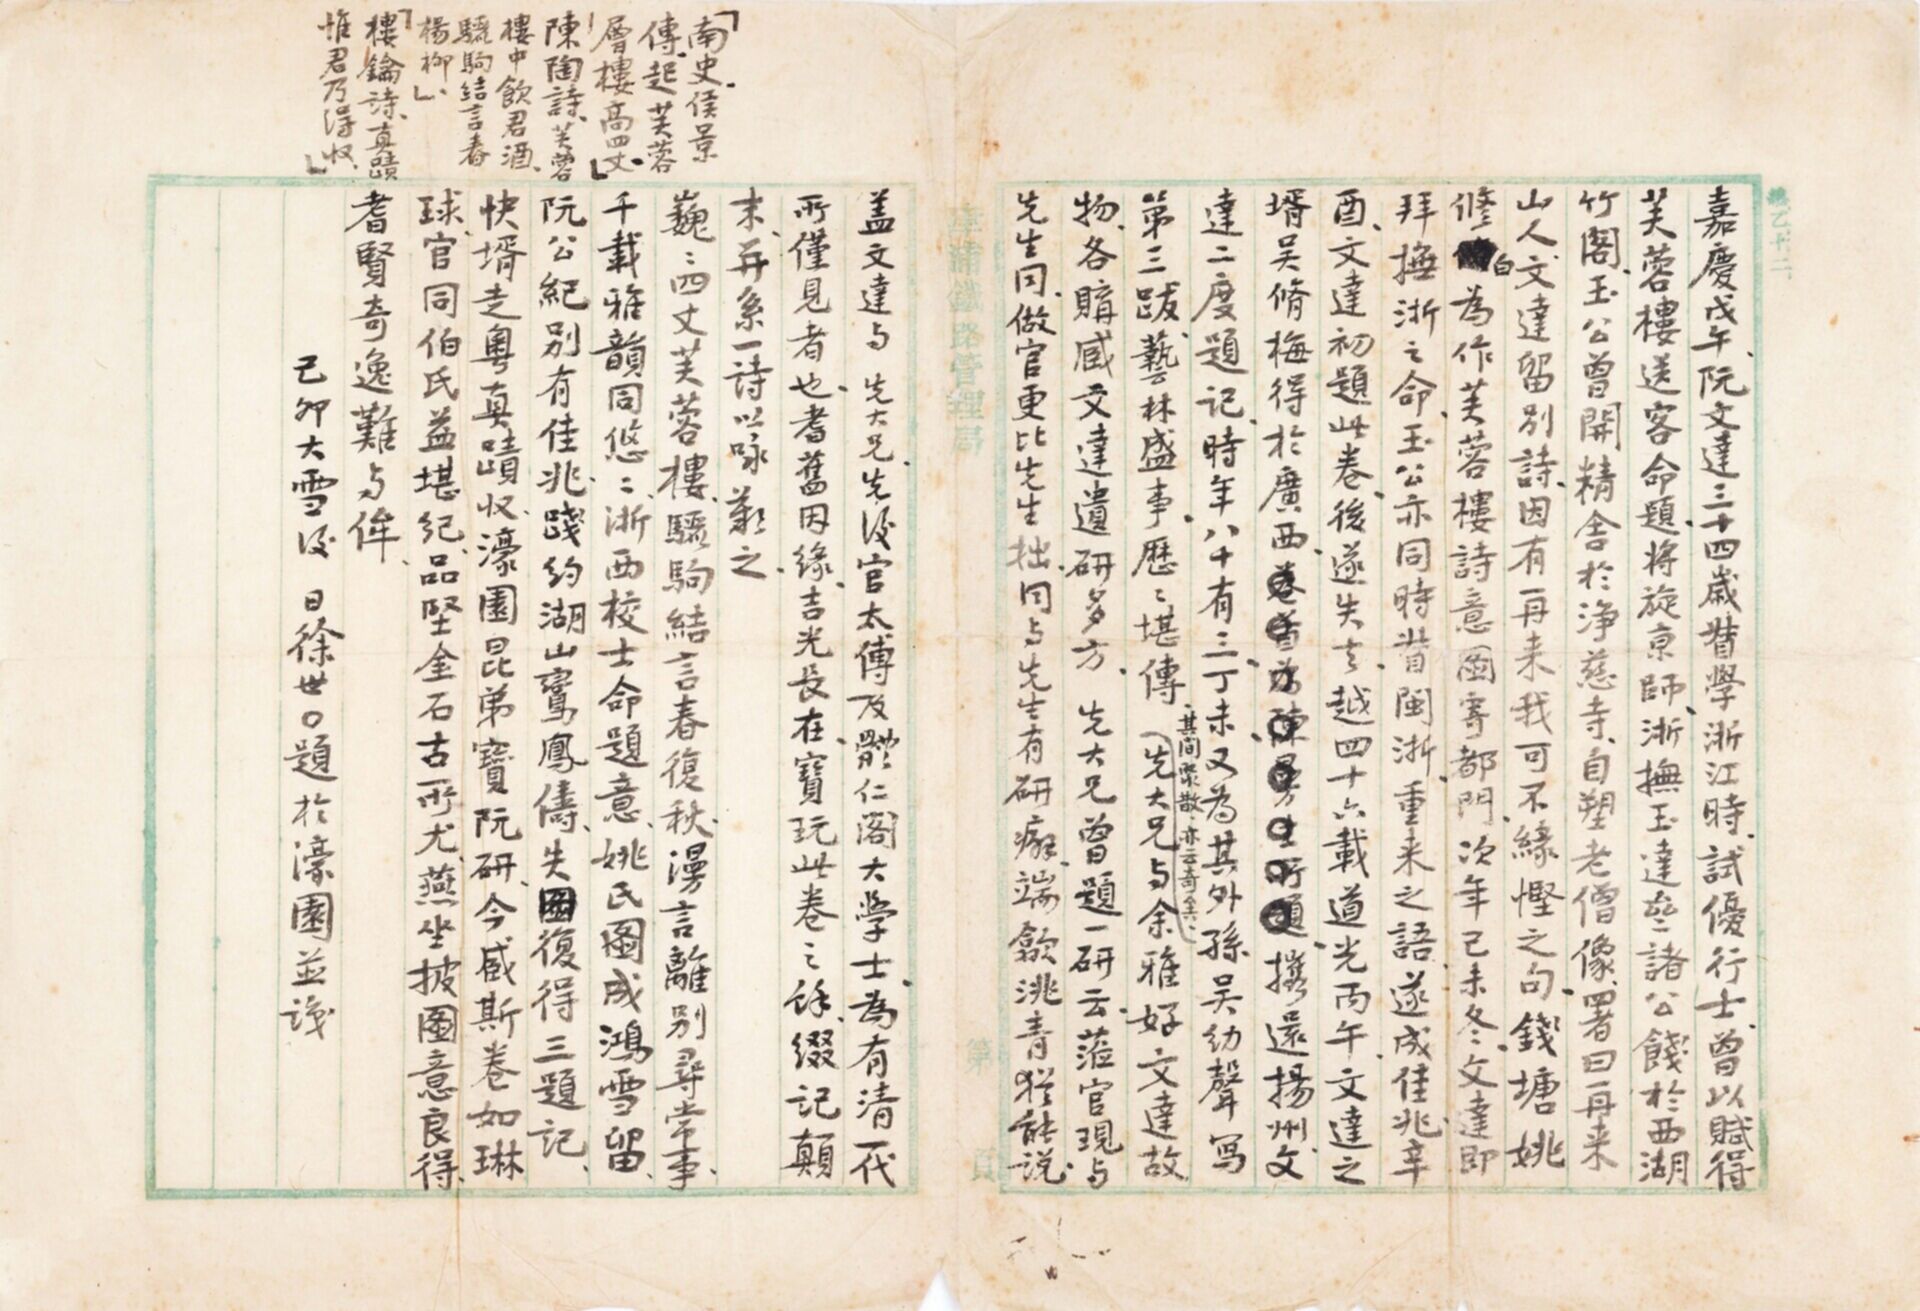 嘉慶戊午、阮文達三十四歲督學浙江時、試優行士、曾以賦得
芙蓉樓送客命題、將旋京師、浙撫玉達齋諸公餞於西湖
竹閣、玉公曾開精舍於淨慈寺、自塑老僧像、署曰再來
山人、文達留別詩、因有再来我可不緣慳之句、錢塘姚
修白為作芙蓉樓詩意圖寄都門、次年己未冬、文達即
拜撫浙之命、玉公亦同時督閩浙、重来之語、遂成佳兆、辛
酉、文達初題此卷、後遂失去、越四十六載道光丙午、文達之
壻吳脩梅得於廣西、攜還揚州、文
達二度題記、時年八十有三、丁未又為其外孫吳幼聲寫
第三跋、藝林盛事、歷歷堪傳
、其間聚散、亦云奇矣、
先大兄与余雅好文達故
物、各購藏文達遺研多方、先大兄曾題一研云、蒞官現与
先生同、做官更比先生拙、同与先生有研癖、端歙洮青猶能說、
蓋文達与先大兄、先後官太傅及體仁閣大學士、為有清一代
所僅見者也、耆舊因緣、吉光長在、寶玩此卷之餘、綴記顛
末、並系一詩以咏歎之、
巍巍四丈芙蓉樓、驪駒結言春復秋、漫言離別尋常事、
千載雅韻同悠悠、浙西校士命題意、姚氏圖成鴻雪留、
阮公紀別有佳兆、踐約湖山鸞鳳儔、失圖復得三題記、
快壻走粵真蹟收、濠園昆弟寶阮研、今咸斯卷如琳
球、官同伯氏益堪紀、品堅金石古所尤、燕坐披圖意良得、
耆賢奇逸難与侔、
己卯大雪後 日徐世〇題於濠園並識
「南史、侯景
傳、起芙蓉
層樓高四丈、」
陳陶詩、芙蓉
樓中飲君酒、
驪駒結言春
楊柳、」
「樓鑰詩、真蹟
惟君乃得收、」
總乙十二
津浦鐵路管理局
第
頁